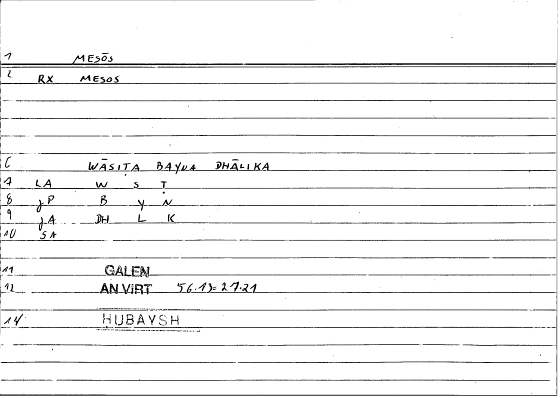 1 MESŌS
2 RX MESOS
6 WĀSIṬA BAYNA DHĀLIKA
7 LA W S Ṭ
8 JP B Y N
9 JA DH L K
10 SA
11 GALEN
12 AN.VIRT 56.13=27.21
14 HUBAYSH